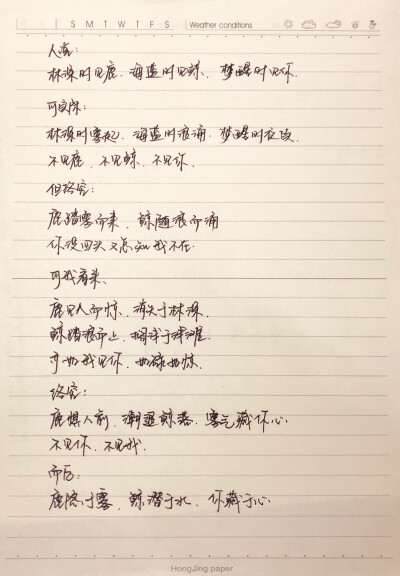 S M T W T F S Weather conditions
人常:
林深时见鹿、海蓝时见鲸、梦醒时见你.
可实际:
林深时雾起、海蓝时浪涌、梦醒时夜续
不见鹿、不见鲸、不见你.
但终究:
鹿踏雾而来、鲸随浪而涌
你没回头又怎知我不在
可我看来、
鹿见人而惊、消失于林深.
鲸踏浪而上、搁浅于浅滩.
亦如我见你、如鹿如惊.
终究:
鹿惧人前、潮退鲸落、雾气藏你心
不见你、不见我.
而后:
鹿隐于雾、鲸潜于水、你藏于心
HongJing paper